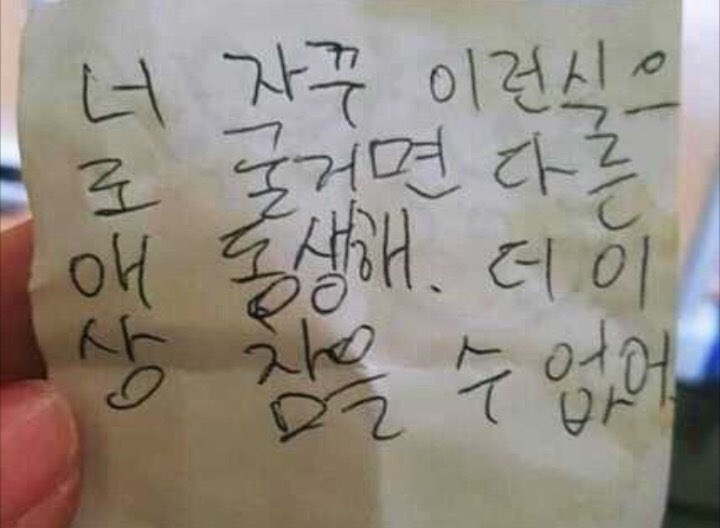 너 자꾸 이런식으
로 굴거면 다른
애 동생해. 더이
상 잠을 수 없어.